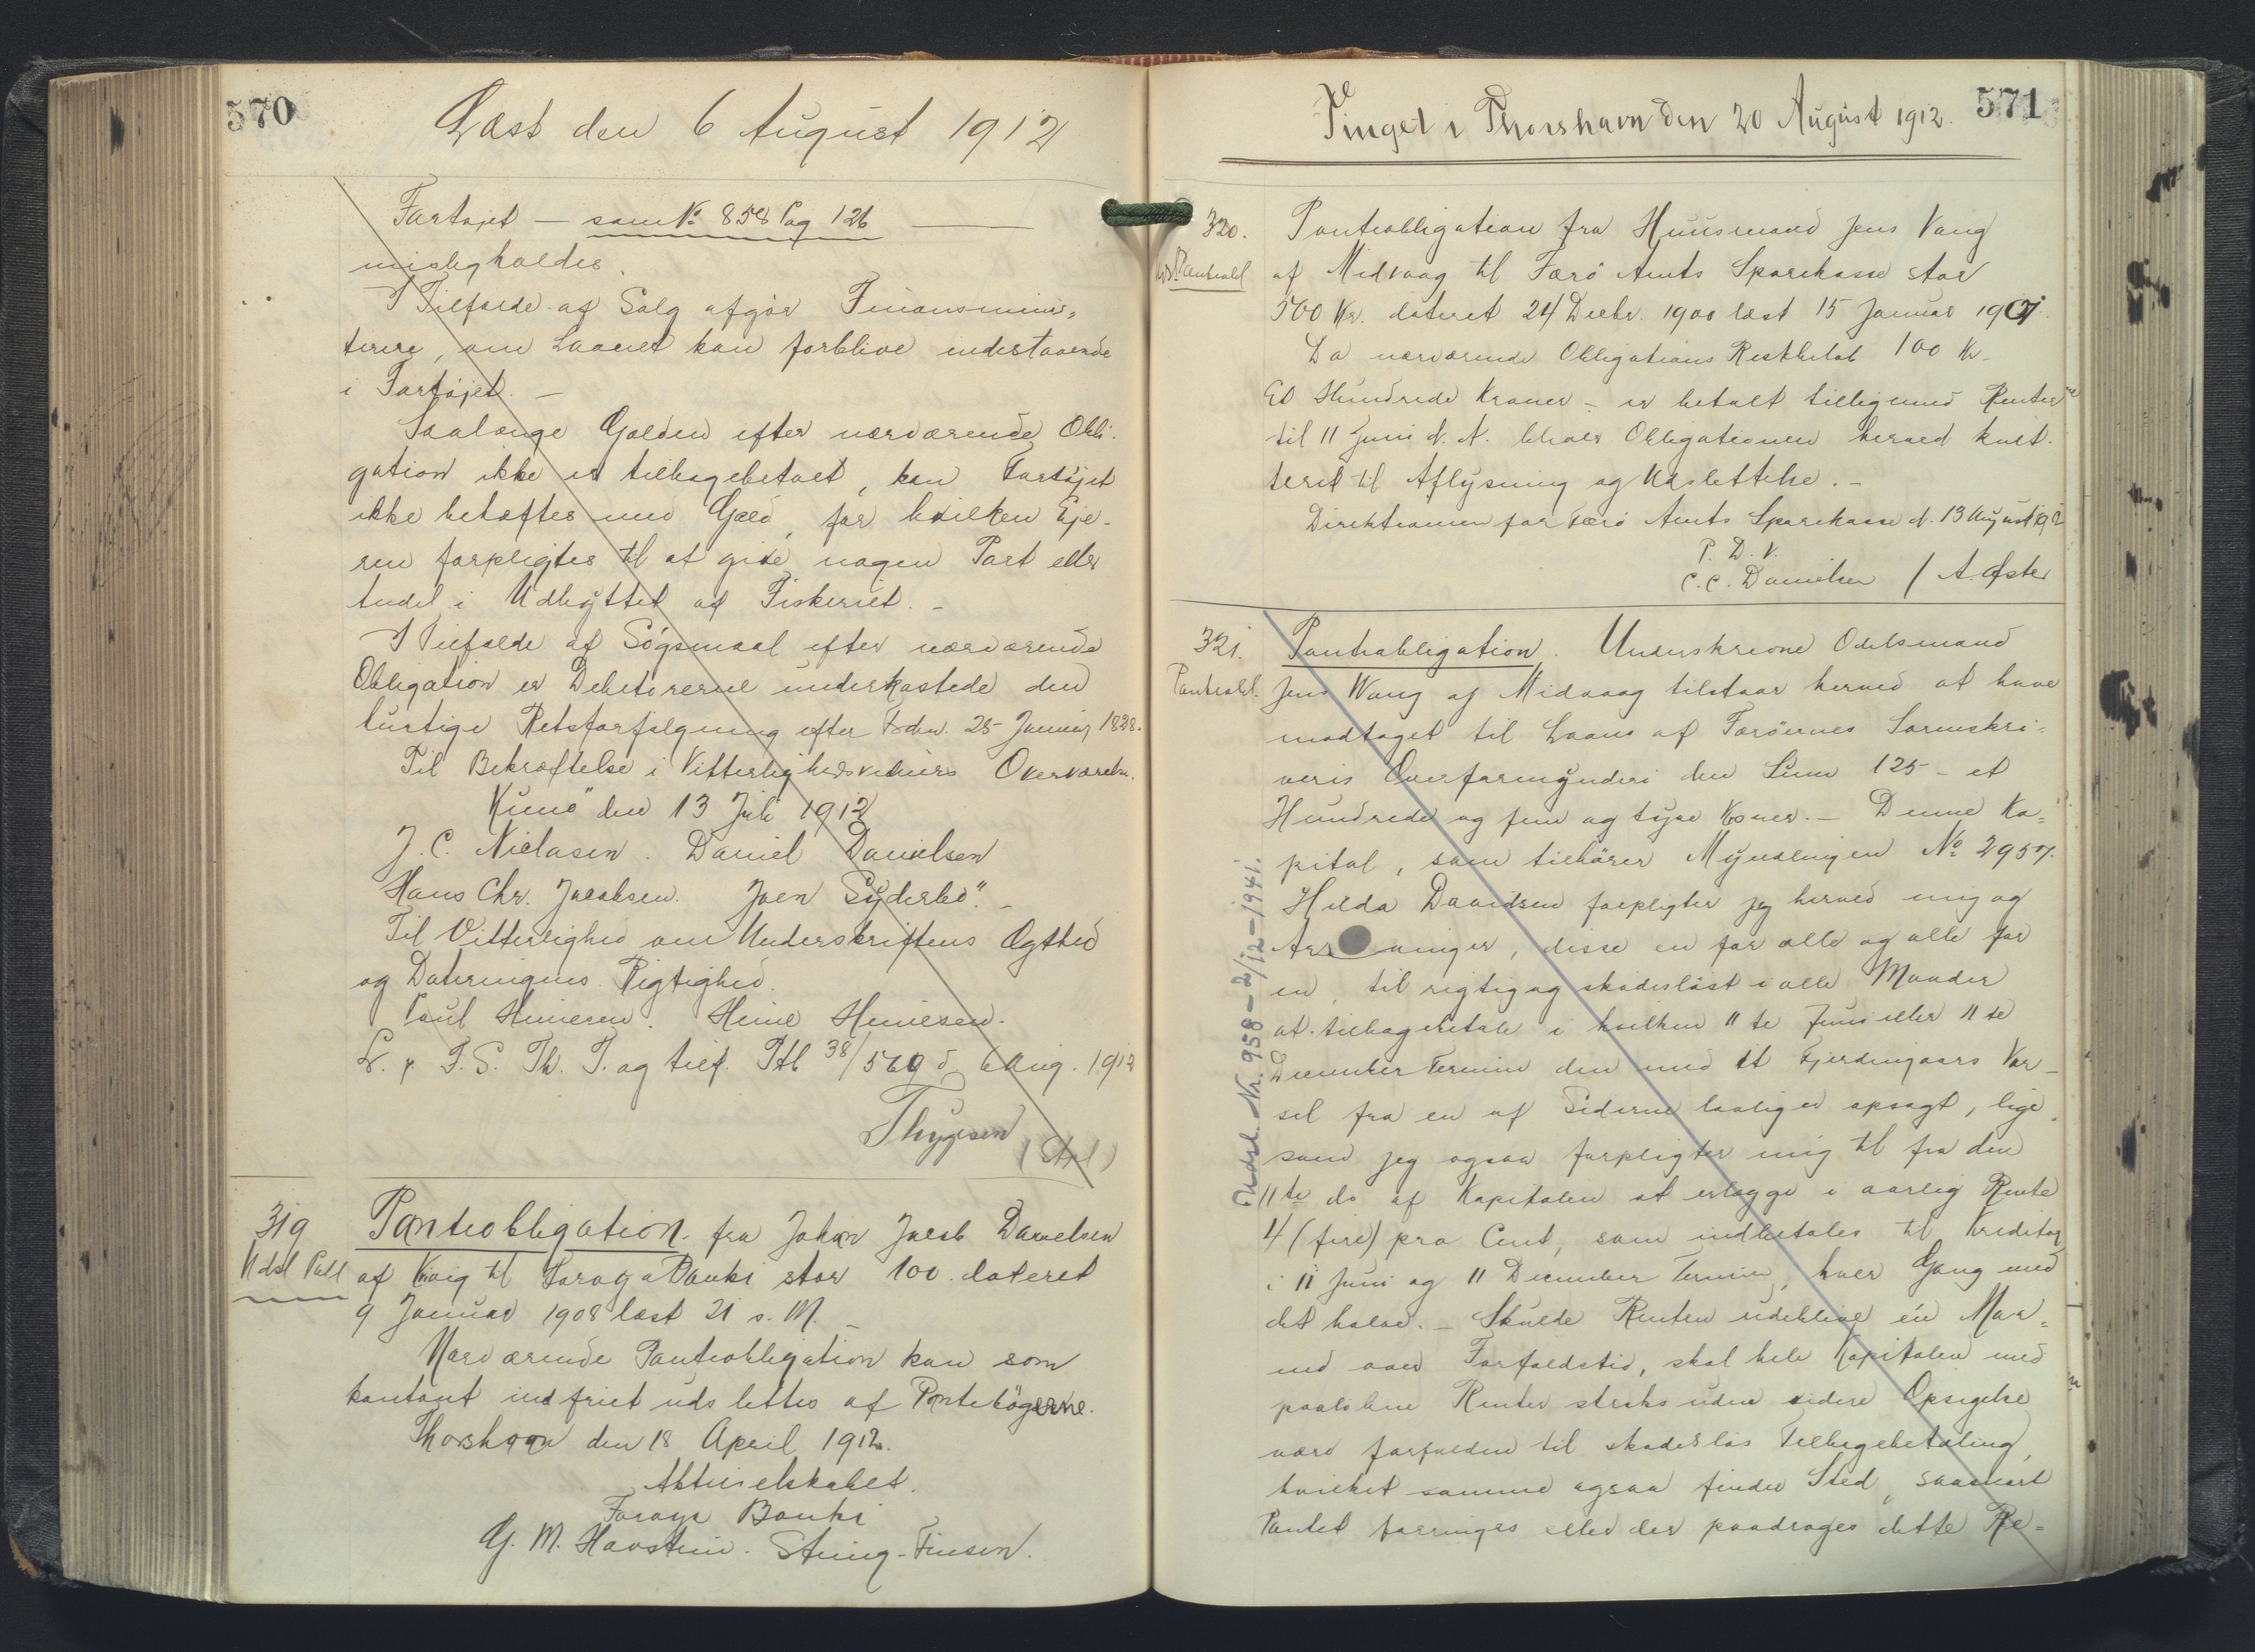 570
Læst den 6 August 1912
Fartøjet — som No 858 Pag 126 —
misligholdes.
I Tilfælde af Salg afgør Finansminis=
teriet, om Laanet kan forblive indestaaende
i Fartøjet. —
Saalænge Gælden efter nærværende Obli-
gation ikke er tilbagebetalt, kan Fartøjet
ikke behæftes med Gæld, for hvilken Eje-
ren forpligtes til at give nogen Part eller
Andel i Udbyttet af Fiskeriet. —
I Tilfælde af Søgsmaal efter nærværende
Obligation er Debitorerne underkastede den
hurtige Retsforfølgning efter Frdn. 25 Januar 1828.
Til Bekræftelse i Vitterlighedsvidners Overværelse.
Kunø den 13 Juli 1912
J. C. Niclasen. Daniel Danielsen
Hans Chr. Jacobsen. Joen Syderbø. —
Til Vitterlighed om Underskriftens Ægthed
og Dateringens Rigtighed.
Poul Heinesen. Heine Heinesen.
L. p. F. S. Th. T. og tilf. Ptb 38/569 d. 6 Aug. 1912
Thygesen
319
Panteobligation fra Johan Jacob Danielsen
Udsl Pall
af Kvig til Førøya Banki stor 100 dateret
9 Januar 1908 læst 21 s. M. —
Nærværende Panteobligation kan som
kontant indfriet udslettes af Pantebøgerne.
Thorshavn den 18 April 1912.
Aktieselskabet.
Førøya Banki
G. M. Havsteen. Steing. Finsen.
Tinget i Thorshavn den 20 August 1912.
571
320.
Pantobligation fra Huusmand Jens Vang
Uds. Pantobl
af Midvaag til Færø Amts Sparekasse stor
500 Kr. dateret 24 Decbr. 1900 læst 15 Januar 1901.
Da nærværende Obligations Restbeløb 100 Kr —
Et Hundrede Kroner — er betalt tilligemed Renter
til 11 Juni d. A. bliver Obligationen herved kvit-
teret til Aflysning og Udslettelse. —
Direktionen for Færø Amts Sparekasse d. 13 August 1912
P. D. V.
C. C. Danielsen / A. Øster
321.
Pantobligation. Underskrevne Odelsmand
Pantobl.
Jens Wang af Midvaag tilstaar herved at have
modtaget til Laans af Færøernes Sorenskri=
veris Overformynderi den Sum 125 — et
Hundrede og fem og tyve Kroner. — Denne Ka=
pital, som tilhører Myndlingen No 2957.
Hilda Davidsen forpligter jeg herved mig og
Arvinger, disse en for alle og alle for
en, til rigtig og skadesløst i alle Maader
at tilbagebetale i hvilken 11te Juni eller 11te
December Termin den med et Fjerdingaars Var-
sel fra en af Siderne lovlig er opsagt, lige
som jeg ogsaa forpligter mig til fra den
11te ds af Kapitalen at erlægge i aarlig Rente
4 (fire) pro Cent, som indbetales til Kreditor
i 11 Juni og 11 December Termin, hver Gang med
det halve. — Skulde Renten udeblive én Maa=
ned over Forfaldstid, skal hele Kapitalen med
paaløbne Renter straks uden videre Opsigelse
være forfalden til skadesløs Tilbagebetaling,
hvilket samme ogsaa finder Sted, saasnart
Pantet forringes eller der paadrages dette Re=
Udsl. Nr. 958 — 2/12 — 1941.